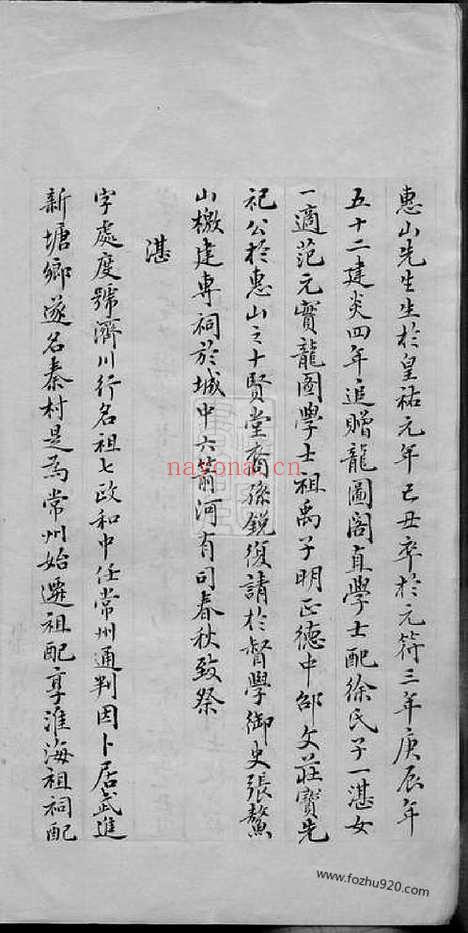 惠山先生生於皇祐元年己丑卒於元符三年庚辰年
五十二建炎四年追贈龍圖閣直學士配徐氏子一湛女
一適范元實龍圖學士祖禹子明正德中邵文莊寶先
祀公於惠山之十賢堂裔孫鋭復請於督學御史張鰲
山檄建專祠於城中六箭河有司春秋致祭
湛
字處度號濟川行名祖七政和中任常州通判因卜居武進
新塘鄉遂名秦村是為常州始遷祖配享淮海祖祠配
nayona.cn
www.fozhu920.com